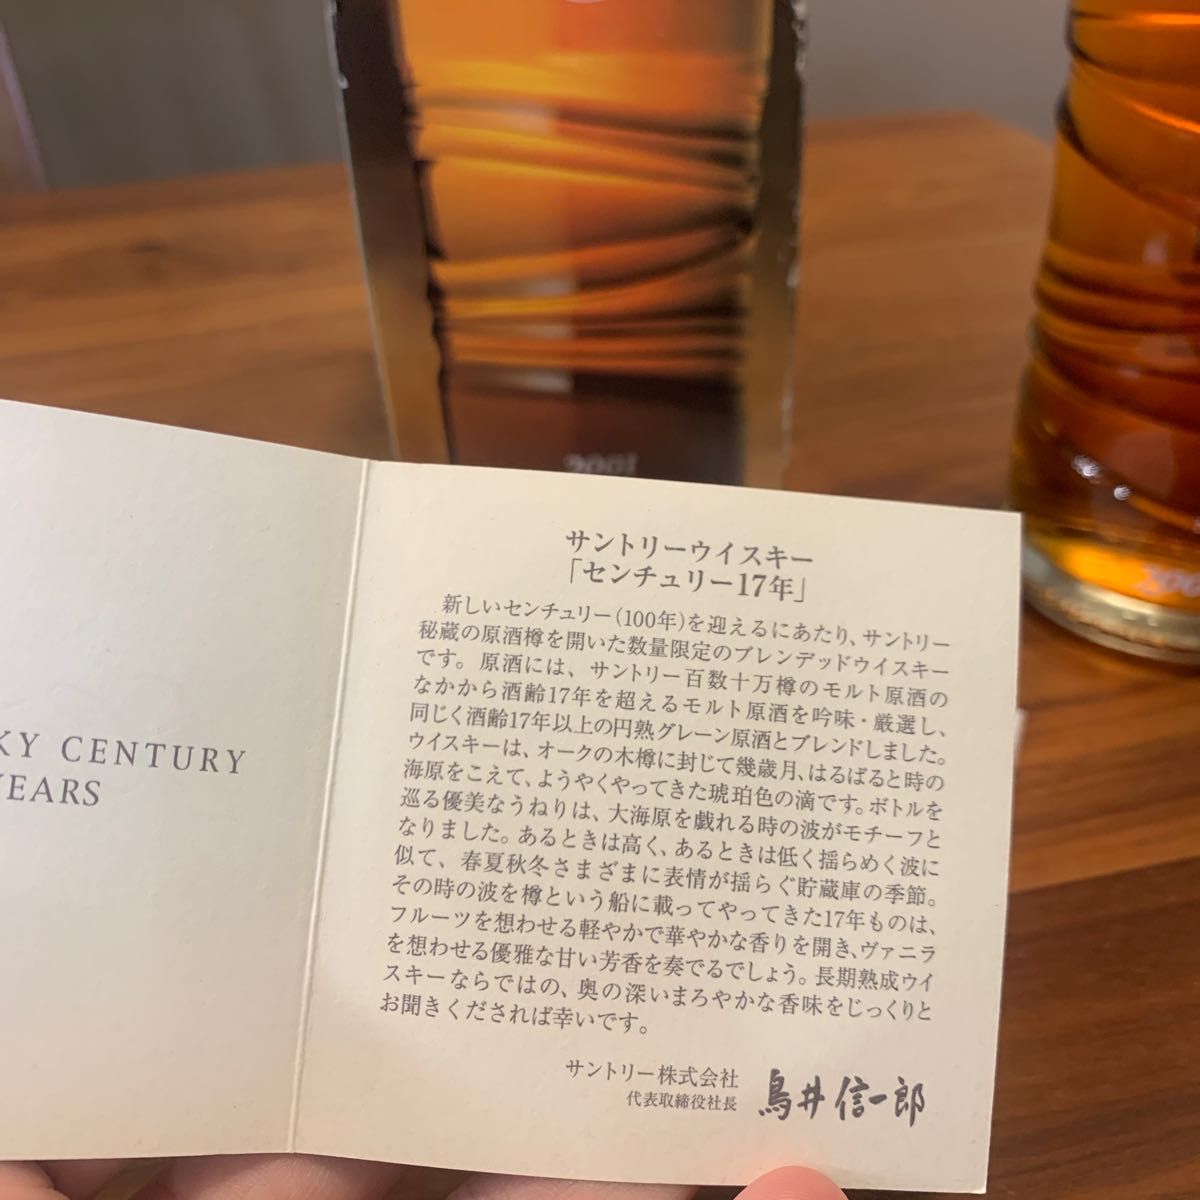 2001
KY CENTURY
YEARS
サントリーウイスキー
「センチュリー17年」
新しいセンチュリー(100年)を迎えるにあたり、サントリー
秘蔵の原酒樽を開いた数量限定のブレンデッドウイスキー
です。原酒には、サントリー百数十万樽のモルト原酒の
なかから酒齢17年を超えるモルト原酒を吟味・厳選し、
同じく酒齢17年以上の円熟グレーン原酒とブレンドしました。
ウイスキーは、オークの木樽に封じて幾歳月、はるばると時の
海原をこえて、ようやくやってきた琥珀色の滴です。ボトルを
巡る優美なうねりは、大海原を戯れる時の波がモチーフと
なりました。あるときは高く、あるときは低く揺らめく波に
似て、春夏秋冬さまざまに表情が揺らぐ貯蔵庫の季節。
その時の波を樽という船に載ってやってきた17年ものは、
フルーツを想わせる軽やかで華やかな香りを開き、ヴァニラ
を想わせる優雅な甘い芳香を奏でるでしょう。長期熟成ウイ
スキーならではの、奥の深いまろやかな香味をじっくりと
お聞きくだされば幸いです。
サントリー株式会社
代表取締役社長
鳥井信一郎